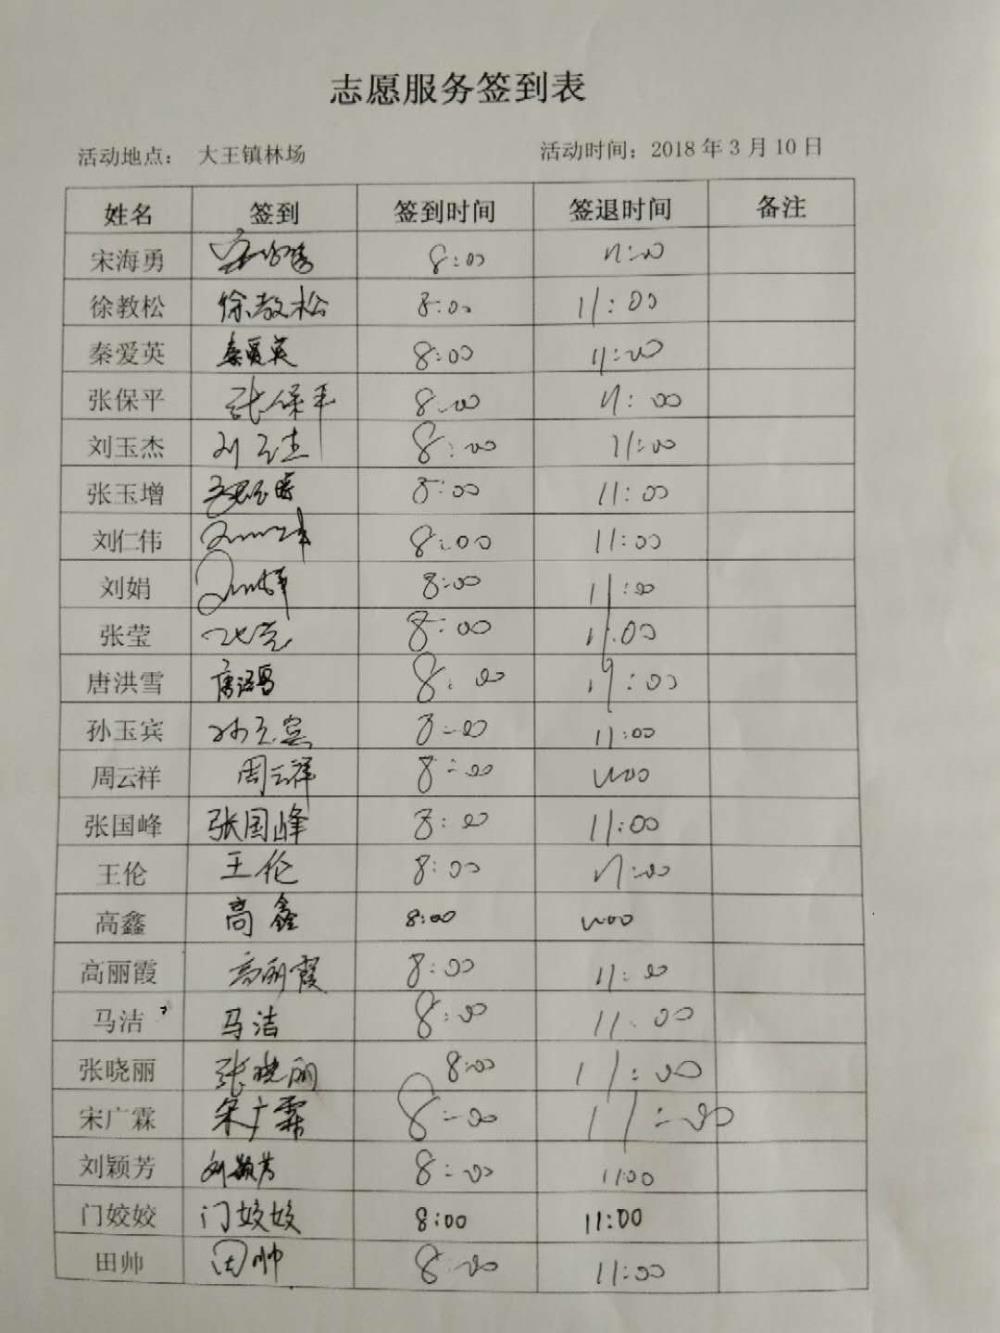 志愿服务签到表
活动地点： 大王镇林场 活动时间：2018年3月10日
姓名 签到 签到时间 签退时间 备注
宋海勇 宋海勇 8:00 11:00
徐教松 徐教松 8:00 11:00
秦爱英 秦爱英 8:00 11:00
张保平 张保平 8:00 11:00
刘玉杰 刘玉杰 8:00 11:00
张玉增 张玉增 8:00 11:00
刘仁伟 刘仁伟 8:00 11:00
刘娟 8:00 11:00
张莹 张莹 8:00 11:00
唐洪雪 唐洪雪 8:00 11:00
孙玉宾 孙玉宾 8:00 11:00
周云祥 周云祥 8:00 11:00
张国峰 张国峰 8:00 11:00
王伦 王伦 8:00 11:00
高鑫 高鑫 8:00 11:00
高丽霞 高丽霞 8:00 11:00
马洁 马洁 8:00 11:00
张晓丽 张晓丽 8:00 11:00
宋广霖 宋广霖 8:00 11:00
刘颖芳 刘颖芳 8:00 11:00
门姣姣 门姣姣 8:00 11:00
田帅 田帅 8:00 11:00